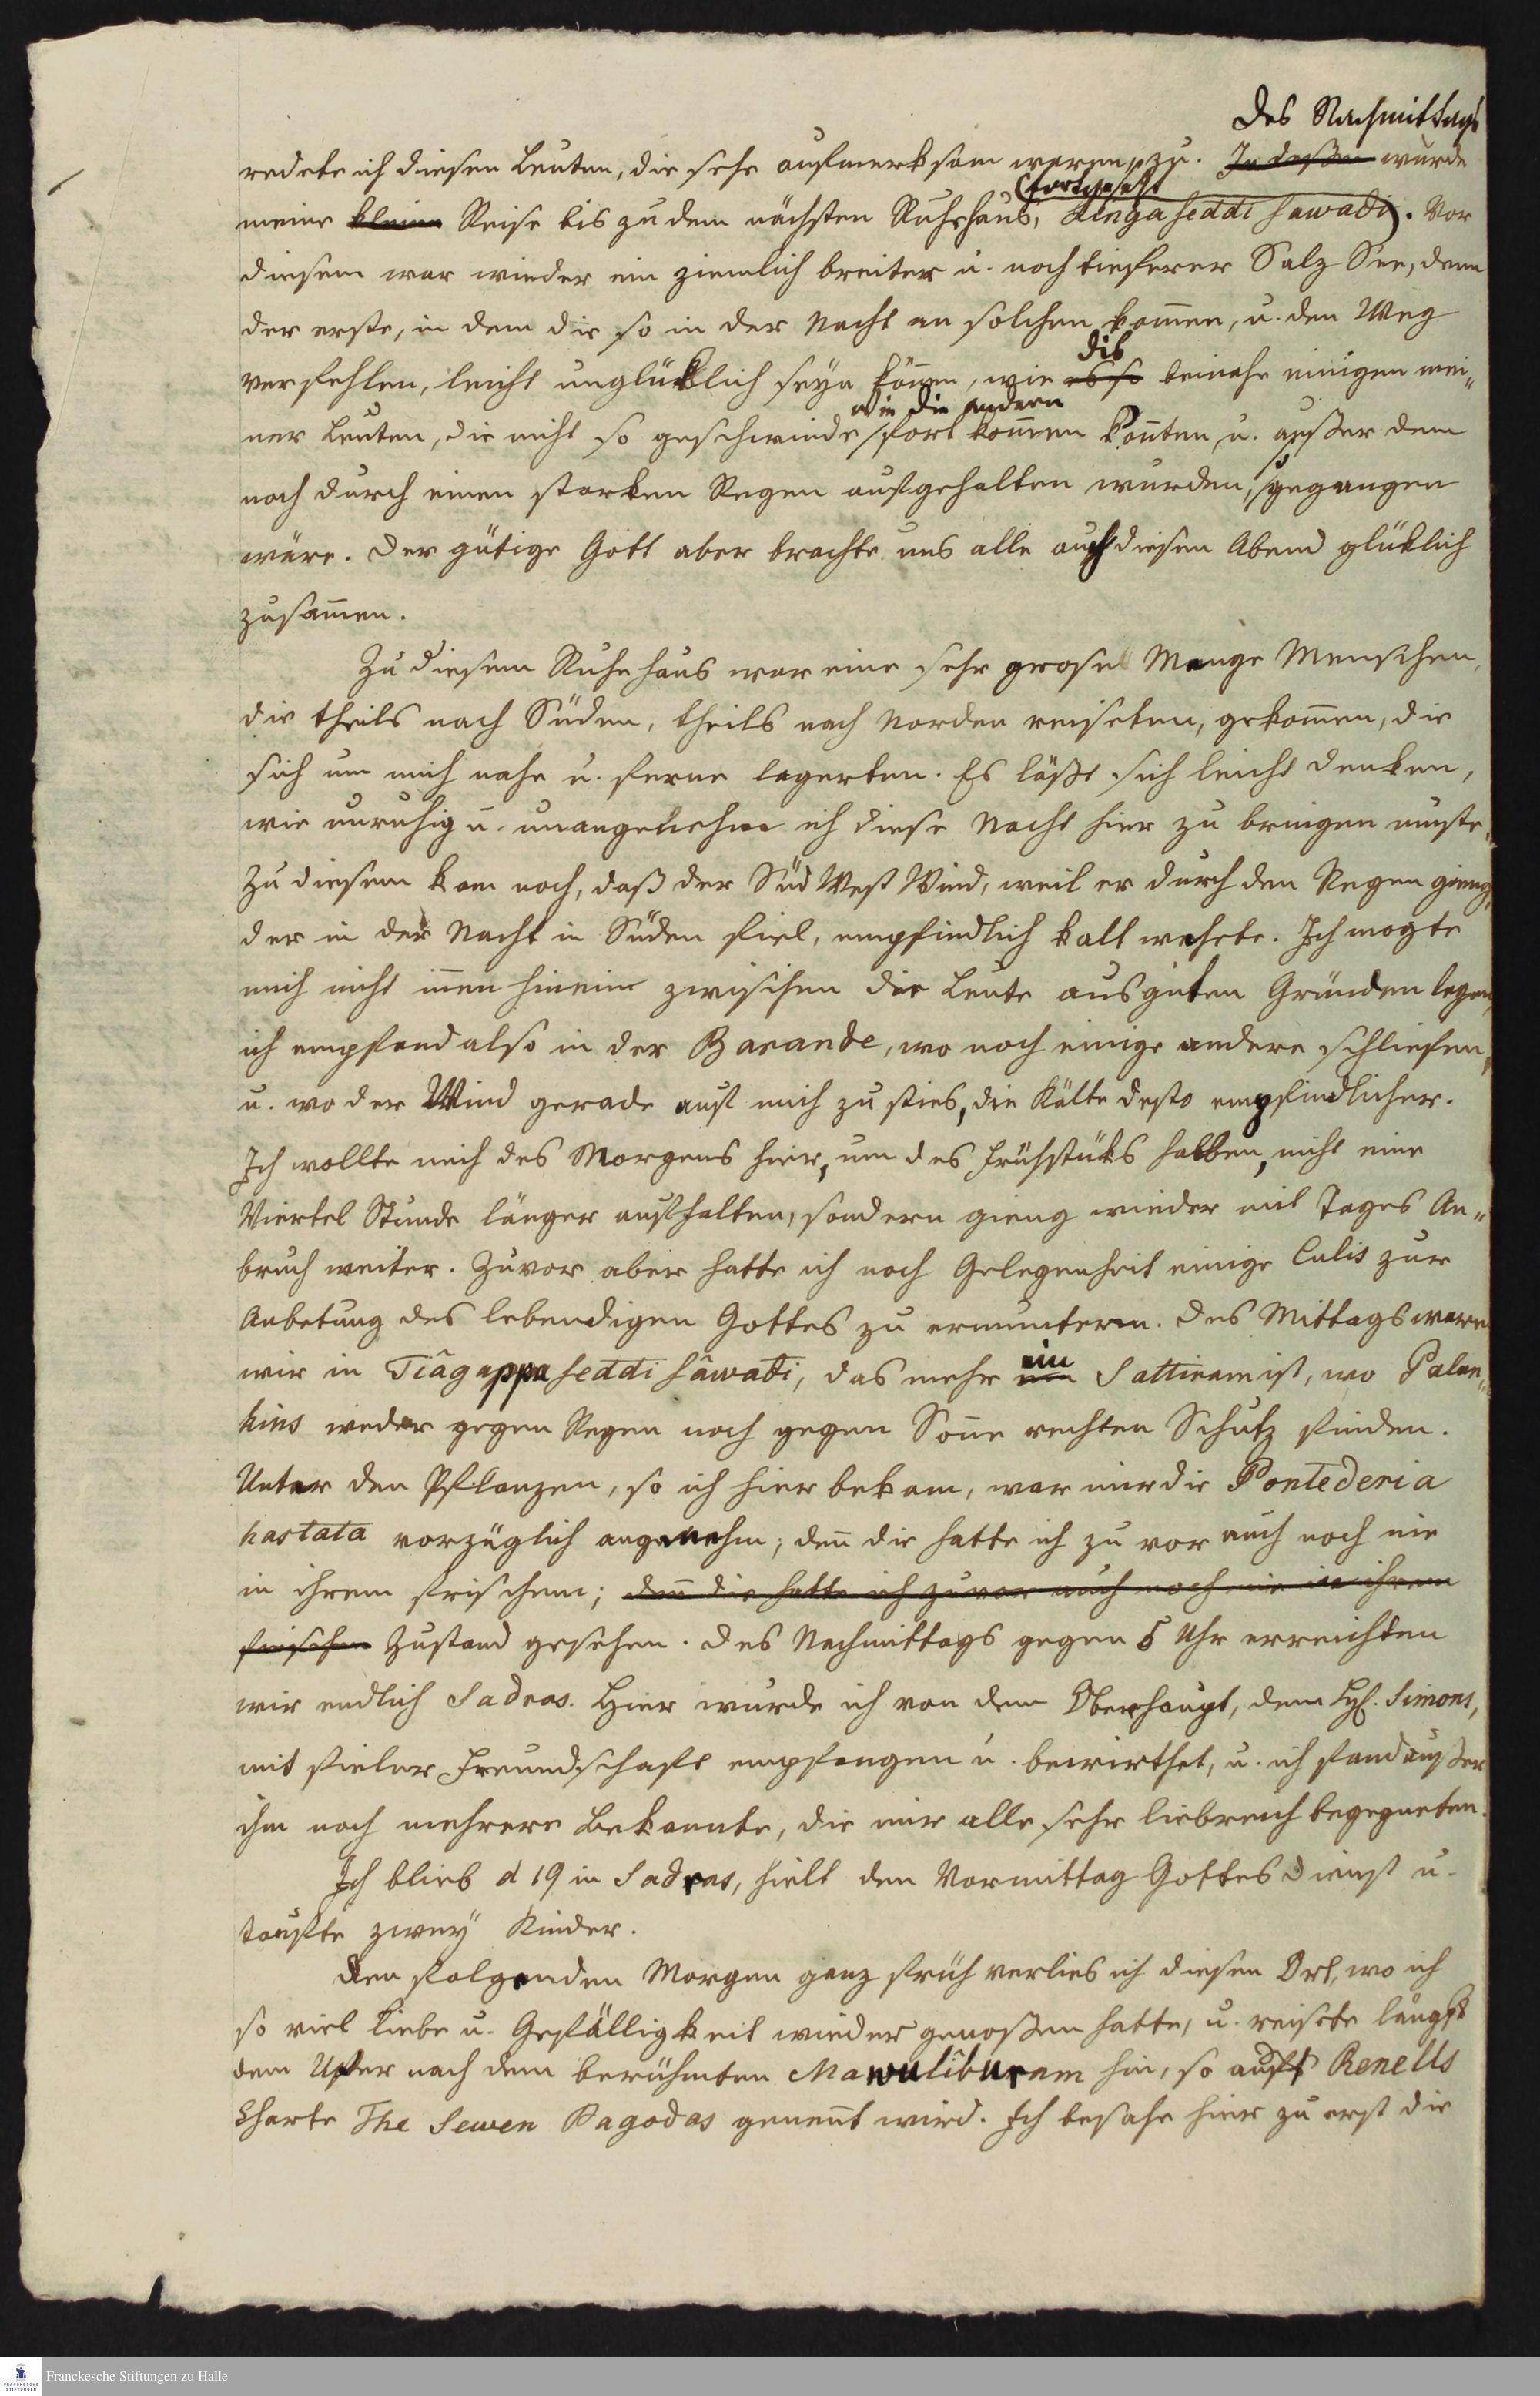 Des Nachmittags
redete ich diesen Leuten, die sehr aufmerksam waren, zu. In deßen wurde
fortgesetzt
meine kleine Reise bis zu dem nächsten Ruhehaus, Lingaseddi sawadi. Vor
diesem war wieder ein ziemlich breiter u. noch tieferer Salz See, denn
der erste, in dem die so in der Nacht an solchen kom̄en, u. den Weg
dis
verfehlen, leicht unglüklich seyn kön̄en, wie es so beinahe einigen mei„
wie die andern
ner Leuten, die nicht so geschwinde fort kom̄en kon̄ten, u. außer dem
so
noch durch einen starken Regen aufgehalten wurden, gegangen
wäre. Der gütige Gott aber brachte uns alle auch diesen Abend glüklich
zusam̄en.
Zu diesem Ruhehaus war eine sehr grose Menge Menschen,
die theils nach Süden, theils nach Norden reiseten, gekom̄en, die
sich um mich nahe u. ferne lagerten. Es läßt sich leicht denken,
wie unruhig u. unangenehm ich diese Nacht hier zu bringen muste.
Zu diesem kam noch, daß der Süd West Wind, weil er durch den Regen gieng,
der in der Nacht in Süden fiel, empfindlich kalt wehete. Ich mogte
mich nicht in̄en hinein zwischen die Leute aus guten Gründen legen,
ich empfand also in der Barande, wo noch einige andere schliefen,
u. wo der Wind gerade auf mich zu sties, die Kälte desto empfindlicher.
Ich wollte mich des Morgens hier, um des Frühstüks halben, nicht eine
Viertel Stunde länger aufhalten, sondern gieng wieder mit Tages An„
bruch weiter. Zuvor aber hatte ich noch Gelegenheit einige Culis zur
Anbetung des lebendigen Gottes zu ermuntern. Des Mittags waren
ein
wir in Tiâgappaseddi sâwadi, das mehr ein Sattiram ist, wo Palan„
kins weder gegen Regen noch gegen Son̄e rechten Schutz finden.
Unter den Pflanzen, so ich hier bekam, war mir die Pontederia
hastata vorzüglich angenehm; den̄ die hatte ich zu vor auch noch nie
in ihrem frischem; den̄ die hatte ich zuvor auch noch nie in ihrem
frischem Zustand gesehen. Des Nachmittags gegen 5 Uhr erreichten
wir endlich Sadras. Hier wurde ich von dem Oberhaupt, dem H. Simons,
mit vieler Freundschaft empfangen u. bewirthet, u. ich fand außer
ihm noch mehrere Bekannte, die mir alle sehr liebreich begegneten.
Ich blieb d 19 in Sadras, hielt den Vormittag Gottes Dienst u.
taufte zwey Kinder.
Den folgenden Morgen ganz früh verlies ich diesen Ort, wo ich
so viel Liebe u. Gefälligkeit wieder genoßen hatte, u. reisete längst
dem Ufer nach dem berühmten Mawulîburam hin, so auf Renells
Charte The Sewen Pagodas genen̄t wird. Ich besahe hier zu erst die
Franckesche Stiftungen zu Halle